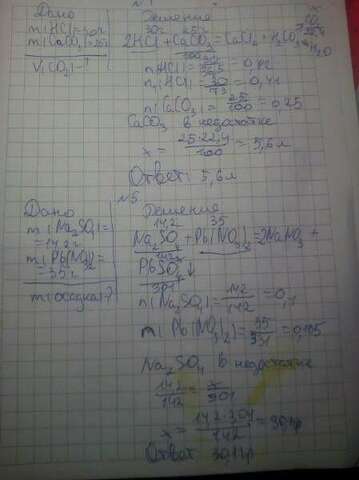 Дано
m(HCl)=30г
m(CaCO3)=25г
V(CO2)-?
Решение
30г 25г x
2HCl+CaCO3=CaCl2+H2CO3
H2O
100
n(HCl)=30/73=0,4г
n(CaCO3)=25/100=0,25
CaCO3 в недостатке
x=25·22,4/100=5,6л
Ответ: 5,6л
№5
Дано
m(Na2SO4)=
=14,2г
m(Pb(NO3)2=
=35г
m(осадка)?
Решение
14,2 35
Na2SO4+Pb(NO3)2=2NaNO3+
PbSO4↓
n(Na2SO4)=14,2/142=0,1
n(Pb(NO3)2)=35/331=0,105
Na2SO4 в недостатке
14,2/142=x/301
x=14,2·301/142=30,1гр
Ответ 30,1гр